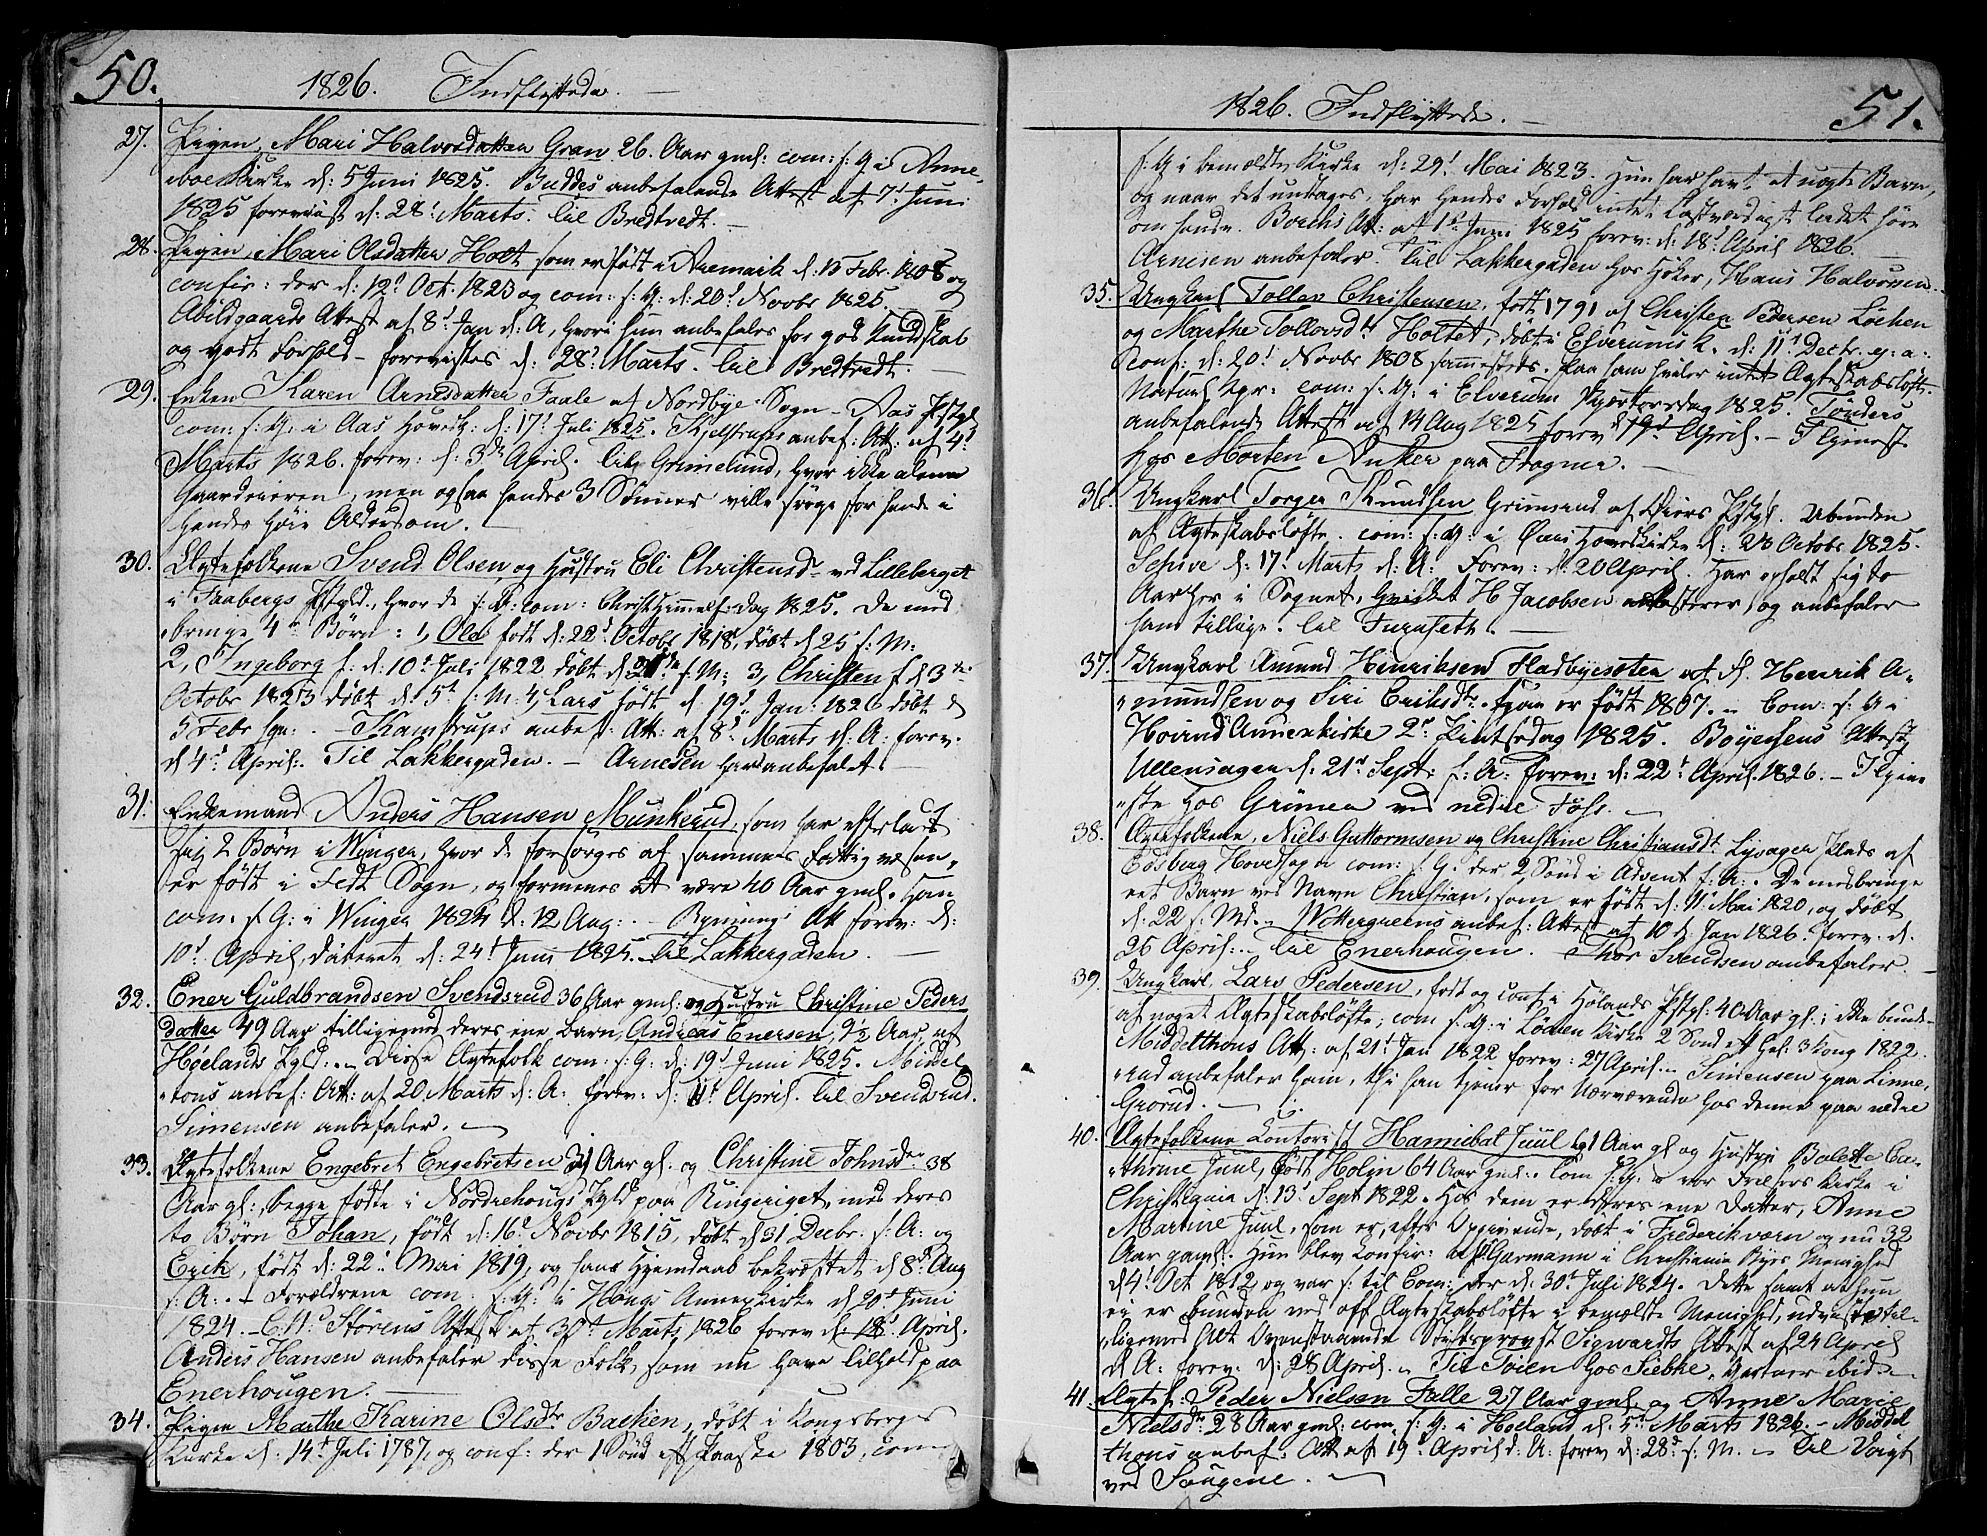 50.
1826. Indflyttede.
27. Pigen, Mari Halvorsdatter Gran 26. Aar gml: com: s: G i Anne-
boe Kirke d: 5 Juni 1825. Buddes anbefalende Attest af 7d Juni
1825 forevist d: 28d Marts. til Bredtvedt.
28. Pigen, Mari Olsdatter Holt, som er født i Aremark d: 13 Febr. 1808 og
confir: der d: 12d Oct. 1823 og com: s: G: d: 20d Novbr 1825.
Abildgaards Attest af 8d Jan d: A, hvori hun anbefales for god Kundskab
og godt Forhold - forevistes d: 28d Marts. til Bredtvedt.
29. Enken Karen Arnesdatter Faale af Nordbye Sogn - Aas Pstgl
com: s: G: i Aas Hovedk: d: 17d Juli 1825. Kjelstrups anbef: Att: af 4d
Marts 1826. forev: d: 3de April. til Grimelund, hvor ikke alene
Gaardeieren, men ogsaa hendes 3 Sønner ville sørge for hende i
hendes høie Alderdom.
30. Ægtefolkene Svend Olsen, og Hustru Eli Christensd: ved Lilleberget
i Faabergs Pstgld., hvor de s: G: com: Christi Himmelf: dag 1825. De med
bringe 4 Børn: 1, Ole født d: 22d Octobr 1818, døbt d 25 s: M.
2, Ingeborg f. d: 10d Juli 1822 døbt d: 21de s: M; 3, Christen f d 3de
Octobr 1823 døbt d: 5t s: M. 4, Lars født d: 19d Jan: 1826 døbt d
5 Febr . - Kamstrups anbef: Att: af 8d Marts d: A: forev.
d 4d April. Til Lakkergaden. - Arnesen har anbefalet
31. Enkemand Anders Hansen Munkerud, som har efterladt
sig 2 Børn i Winger, hvor de forsørges af sammes Fattigvæsen,
er født i Fedt Sogn, og formenes at være 40 Aar gml. Han
com. s: G: i Winger 1824 d: 12 Aug: - Rynnings Att forev: d:
10d April, dateret d: 24d Juni 1825. til Lakkergaden.
32. Ener Guldbrandsen Svendsrud 36 Aar gml: og Hustru Christine Peders
datter 49 Aar tilligemed deres ene Barn, Andreas Enersen, 9½ Aar, af
Høelands Pgld. - Disse Ægtefolk com: s: G: d: 19d Juni 1825. Middel
tons anbef: Att: af 20 Marts d: A: forev: d: 11t April. til Svendsrud.
Simensen anbefaler.
33. Ægtefolkene Engebret Engebretsen 31 Aar gl. og Christine Johnsdr 38
Aar gl:, begge fødte i Nordrehougs Pgld paa Ringeriget, med deres
to Børn Johan, født d: 16d Novbr 1815, døbt d 31 Decbr. s: A: og
Erik, født d: 22d Mai 1819, og hans Hjemdaab bekræftet d 8d Aug
s: A: - Forældrene com: s: G: i Hougs Annexkirke d 20d Juni
1824. - C. H. Størens Attest af 30d Marts 1826 forev d: 18d April.
Anders Hansen anbefaler disse Folk, som nu have tilhold paa
Enerhougen.
34. Pigen Marthe Karine Olsdr Backen, døbt i Kongsbergs
Kirke d: 14d Juli 1787, og conf: der 1 Sønd eft Paaske 1803, com
1826. Indflyttede.
51.
s: G i bemældte Kirke d: 29d Mai 1823. Hun har havt et uægte Barn,
og naar det undtages, har hendes Forhold intet Lastværdigt ladet høre
om hende. Borchs Att: af 1d Juni 1825 forev: d: 18d April 1826.
Arnesen anbefaler. Til Lakkergaden hos Høker, Hans Halvorsen.
35. Ungkarl Tollev Christensen, født 1791 af Christen Pedersen Løchen
og Marthe Tollevsdr Holtet, døbt i Elverums K. d: 11d Decbr. s: a:.
conf: d: 20d Novbr 1808 sammesteds. Paa ham hviler intet Ægteskabsløft.
Naturl Kpr: com: s: G: i Elverum Skjærtorsdag 1825. Tønders
anbefalende Attest af 14 Aug 1825 forev d 19d April. - Tjeneste
hos Morten Anker paa Frogner.
36. Ungkarl Torger Knudsen Grimsrud af Øiers Pstgl. Ubunden
af Ægteskabsløfte. com: s: G: i Øiers Hovedkirke d: 23 Octobr 1825.
Schive d: 17d Marts d: A: Forev: d: 20 April. Har opholdt sig to
Aar her i Sognet, hvilket H. Jacobsen attesterer, og anbefaler
ham tillige. til Furuseth.
37. Ungkarl Amund Henriksen Fladbyesæter af d. Henrik A-
mundsen og Siri Eriksdr. Han er født 1807. - Com: s: G i
Hovind Annexkirke 2d Pintsedag 1825. Boyesens Attest,
Ullensager d: 21d Sept: s: A: forev: d: 22d April. 1826. - Tjene
ste hos Grüner ved nedre Foss.
38. Ægtefolkene, Niels Guttormsen og Christine Christiansdr Lysager Plads af
Edsberg Hovedsogn com: s: G. der 2 Sønd i Advent s: A:. De medbringe
eet Barn ved Navn Christian, som er født d: 11 Mai 1820, og døbt
d: 22 s: Md. - Wettergreens anbef: Attest af 10 d: Jan 1826. forev. d.
26 April. - til Enerhougen. Thor Svendsen anbefaler.
39. Ungkarl Lars Pedersen, født og conf i Hølands Pstgl. 40 Aar gl; ikke bunden
af noget Ægteskabsløfte; com s: G: i Løchen Kirke 2 Sønd eft Hel: 3 Kong 1822.
Middelthons Att: af 21d Jan 1822 forev: 27 April. - Simensen paa Linne-
rud anbefaler ham, thi han tjener for Nærværende hos denne paa nedre
Grorud.
40. Ægtefolkene Kontorist Hannibal Juul 61 Aar gl og Hustru Bolette Ca-
thrine Juul, født Holm 64 Aar gml. Com s: G: i vor Frelsers Kirke i
Christiania d: 13d Sept 1822. Hos dem er deres ene Datter, Anne
Martine Juul, som er, efter Opgivende, døbt i Frederiksværn og nu 32
Aar gaml. Hun blev Confir: af Garmann i Christiania Byes Menighed
d 4d Oct 1812 og var s: til Com: der d: 30d Juli 1824. Dette samt at hun
ei er bunden ved off Ægteskabsløfte i bemældte Menighed, udviser til-
ligemed Alt Ovenstaaende Stiftsprovst Sigwardts Attest af 24 April
d A: forev. d: 28 April. - Til Toien hos Siebke, Gartner ibid.
41. Ægtef: Peder Nielsen Falle 27 Aar gml og Anne Marie
Nielsdr 28 Aar gml: com. s: G. i Høeland d: 5d Marts 1826. - Middel
thons anbef: Att af 19d April d: A: forev d: 28d s: M. - Til Voigt
ved Saugene.